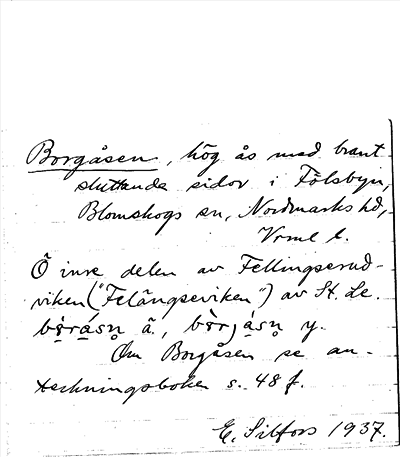 Borgåsen, hög ås med brant
sluttande sidor i Fölsbyn,
Blomskogs sn, Nordmarks hd,
Vrml l.
Ö inre delen av Fellingserud-
viken ("Felängseviken") av St. Le.
ä., y.
Om Borgåsen se an-
teckningsboken s. 48 f.
E. Silfors 1937.